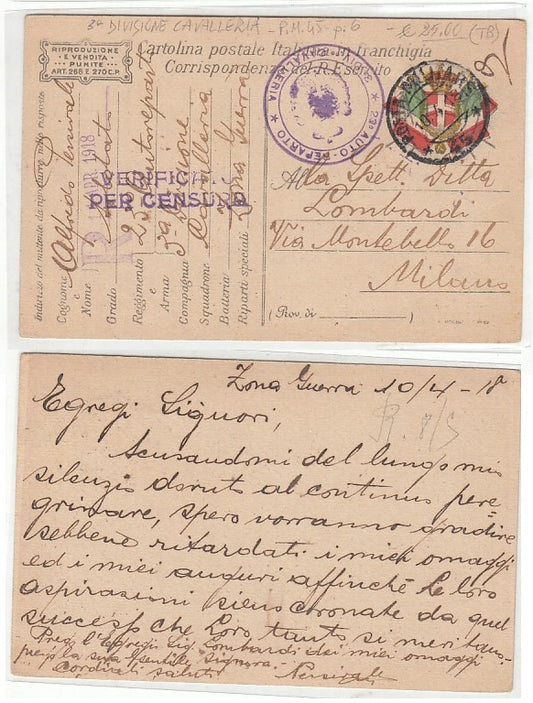 3ª DIVISIONE CAVALLERIA - P.M. 45 - p. 6 - € 25,00 (TB)
RIPRODUZIONE
E VENDITA
PUNITE
ART. 268 E 270 C.P.
Cartolina postale Italiana in franchigia
Corrispondenza del R. Esercito
POSTA MILITARE
45
23º AUTO-REPARTO
CAVALLERIA
Indirizzo del mittente da riprodurre nella risposta
Cognome e Nome Alfredo
Grado Soldato
Reggimento 23 Autoreparto
e
Arma 3ª Divisione
Compagnia
Squadrone Cavalleria
Batteria
Riparti speciali Zona Guerra
APR 1918
VERIFICATO
PER CENSURA
Alla Spett. Ditta
Lombardi
Via Montebello 16
Milano
(Prov. di )
Zona Guerra 10/4-18
Egregi Signori,
R. 8/5
Scusandomi del lungo mio
silenzio dovuto al continuo pere=
grinare, spero vorranno gradire
sebbene ritardati i miei omaggi
ed i miei auguri affinchè le loro
aspirazioni sieno coronate da quel
successo che Loro tanto si meritano.
Preg. l'Egregio Sig. Lombardi dei miei omaggi
presso la sua gentile Signora.
Cordiali saluti